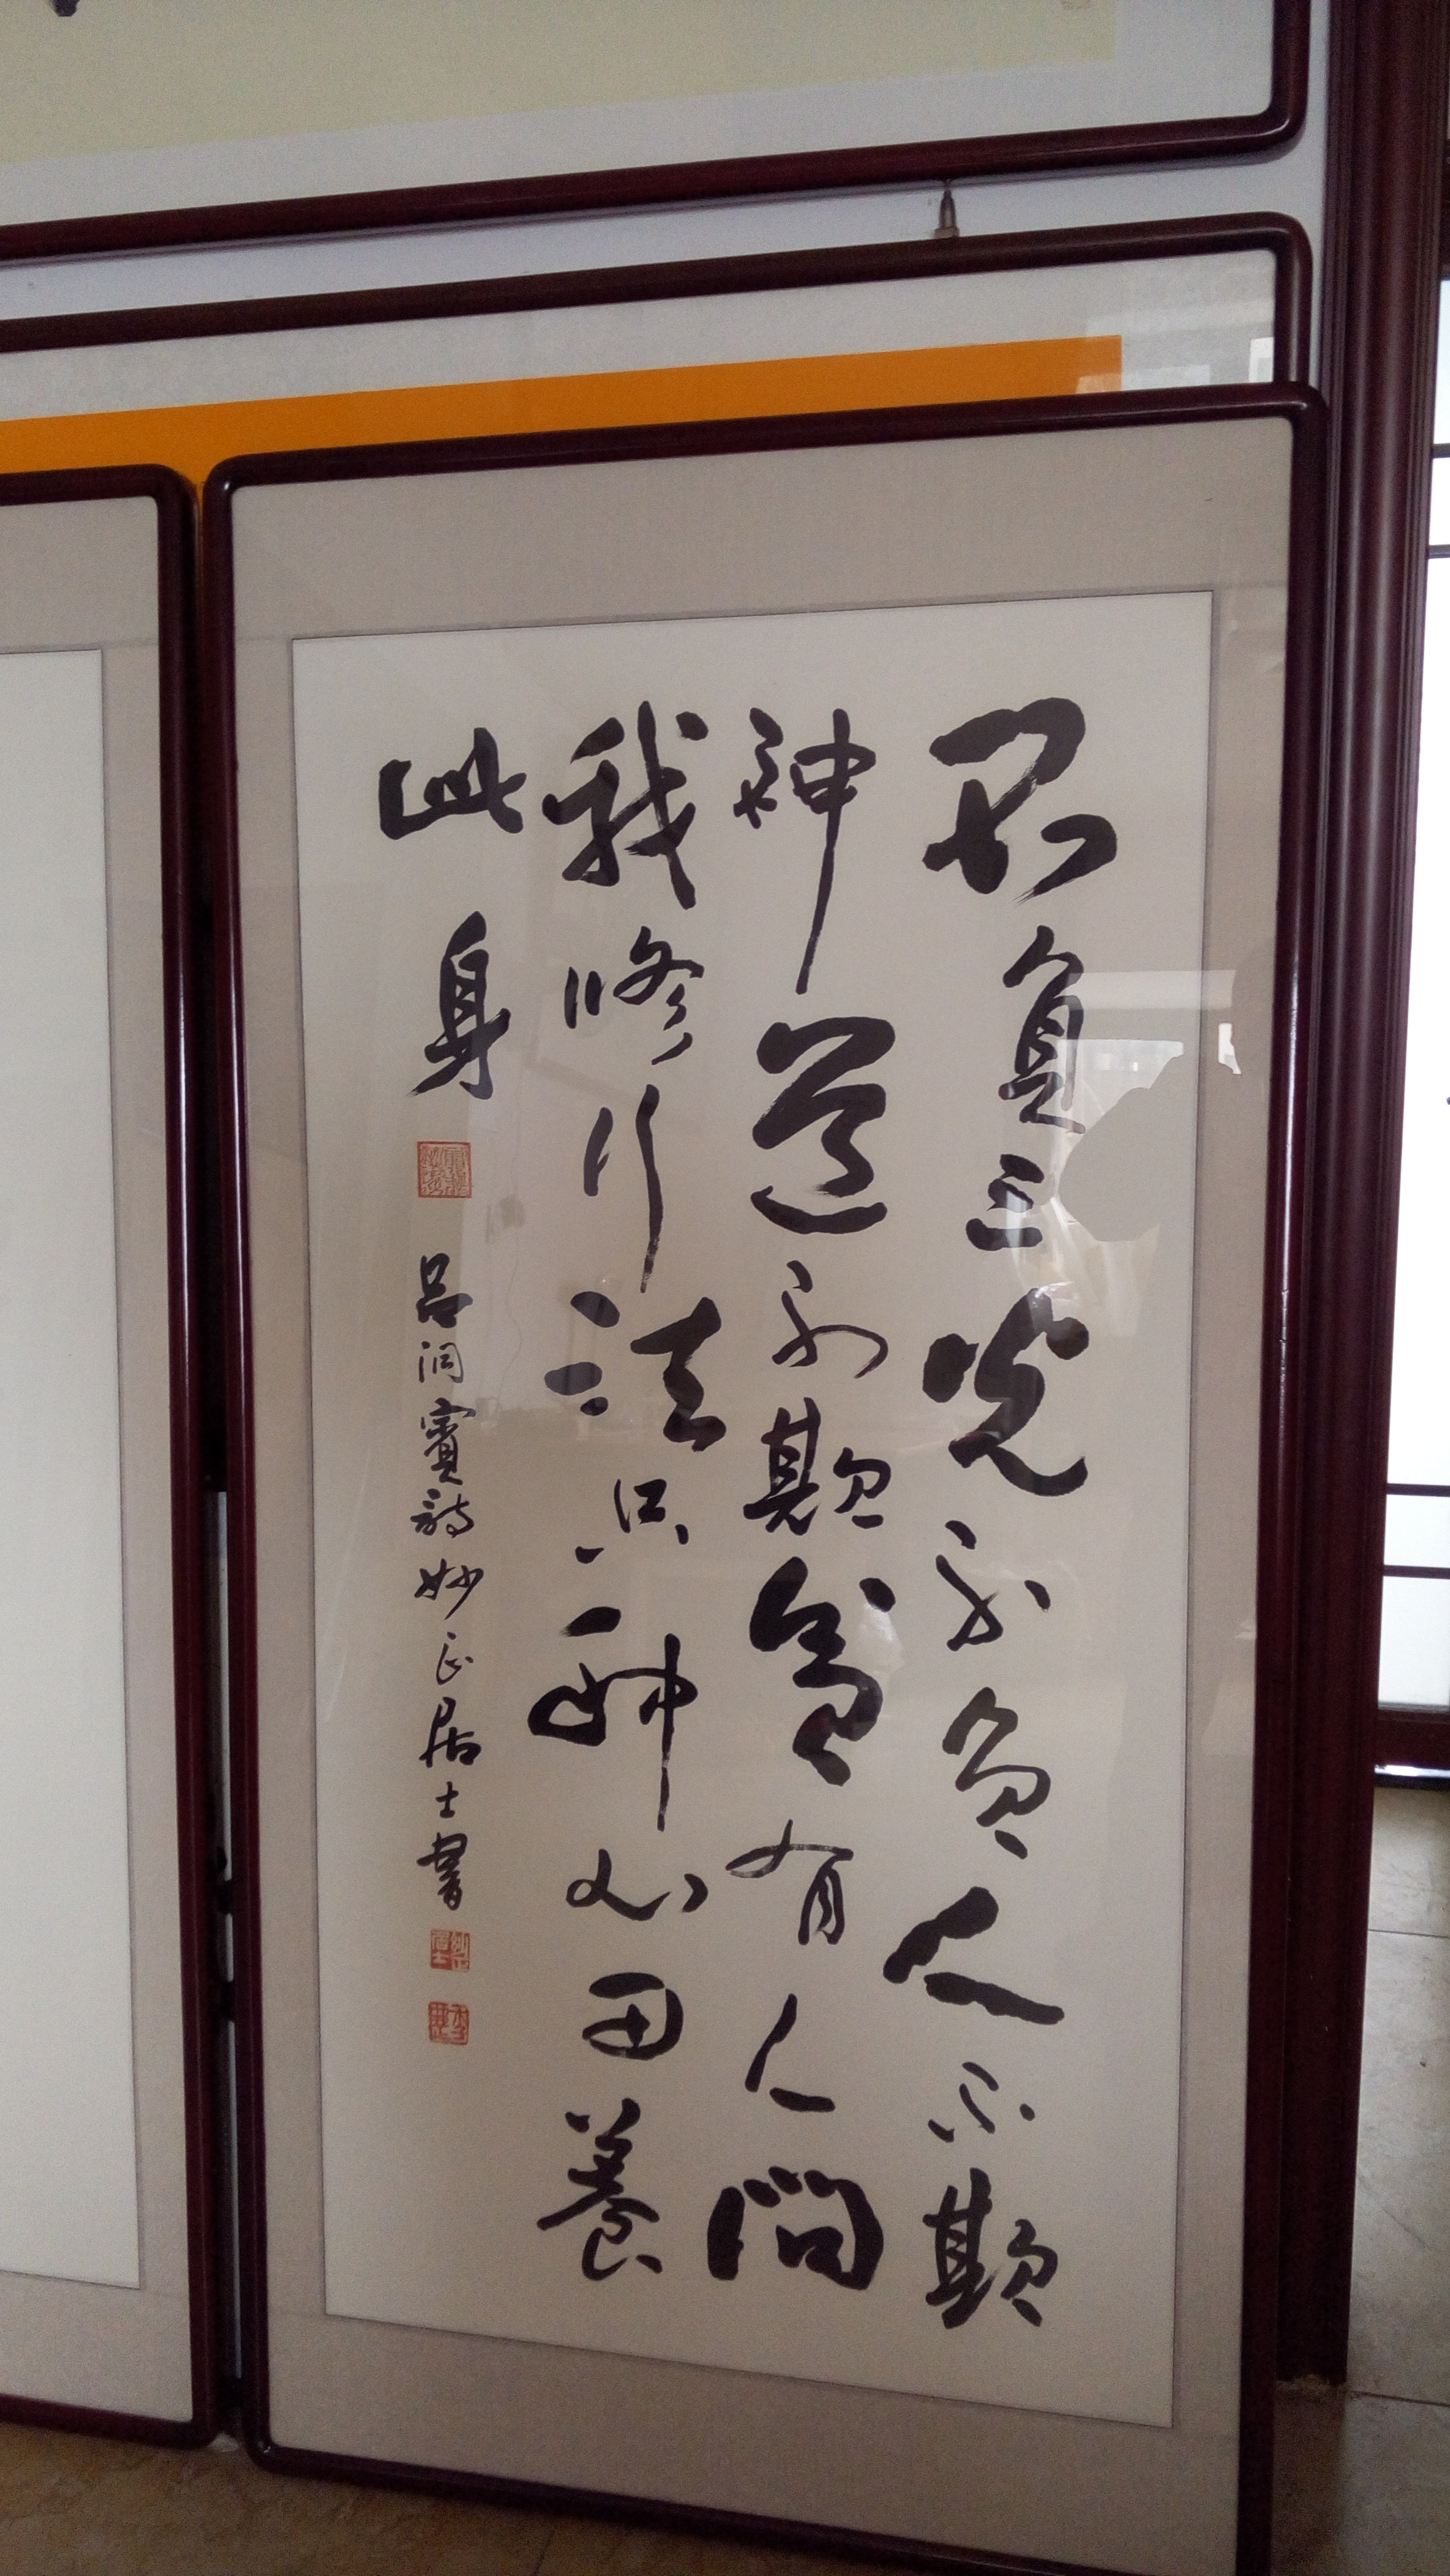 不負三光不負人不欺
神道不欺貧有人問
我修行法只種心田養
此身
呂洞賓詩妙正居士書